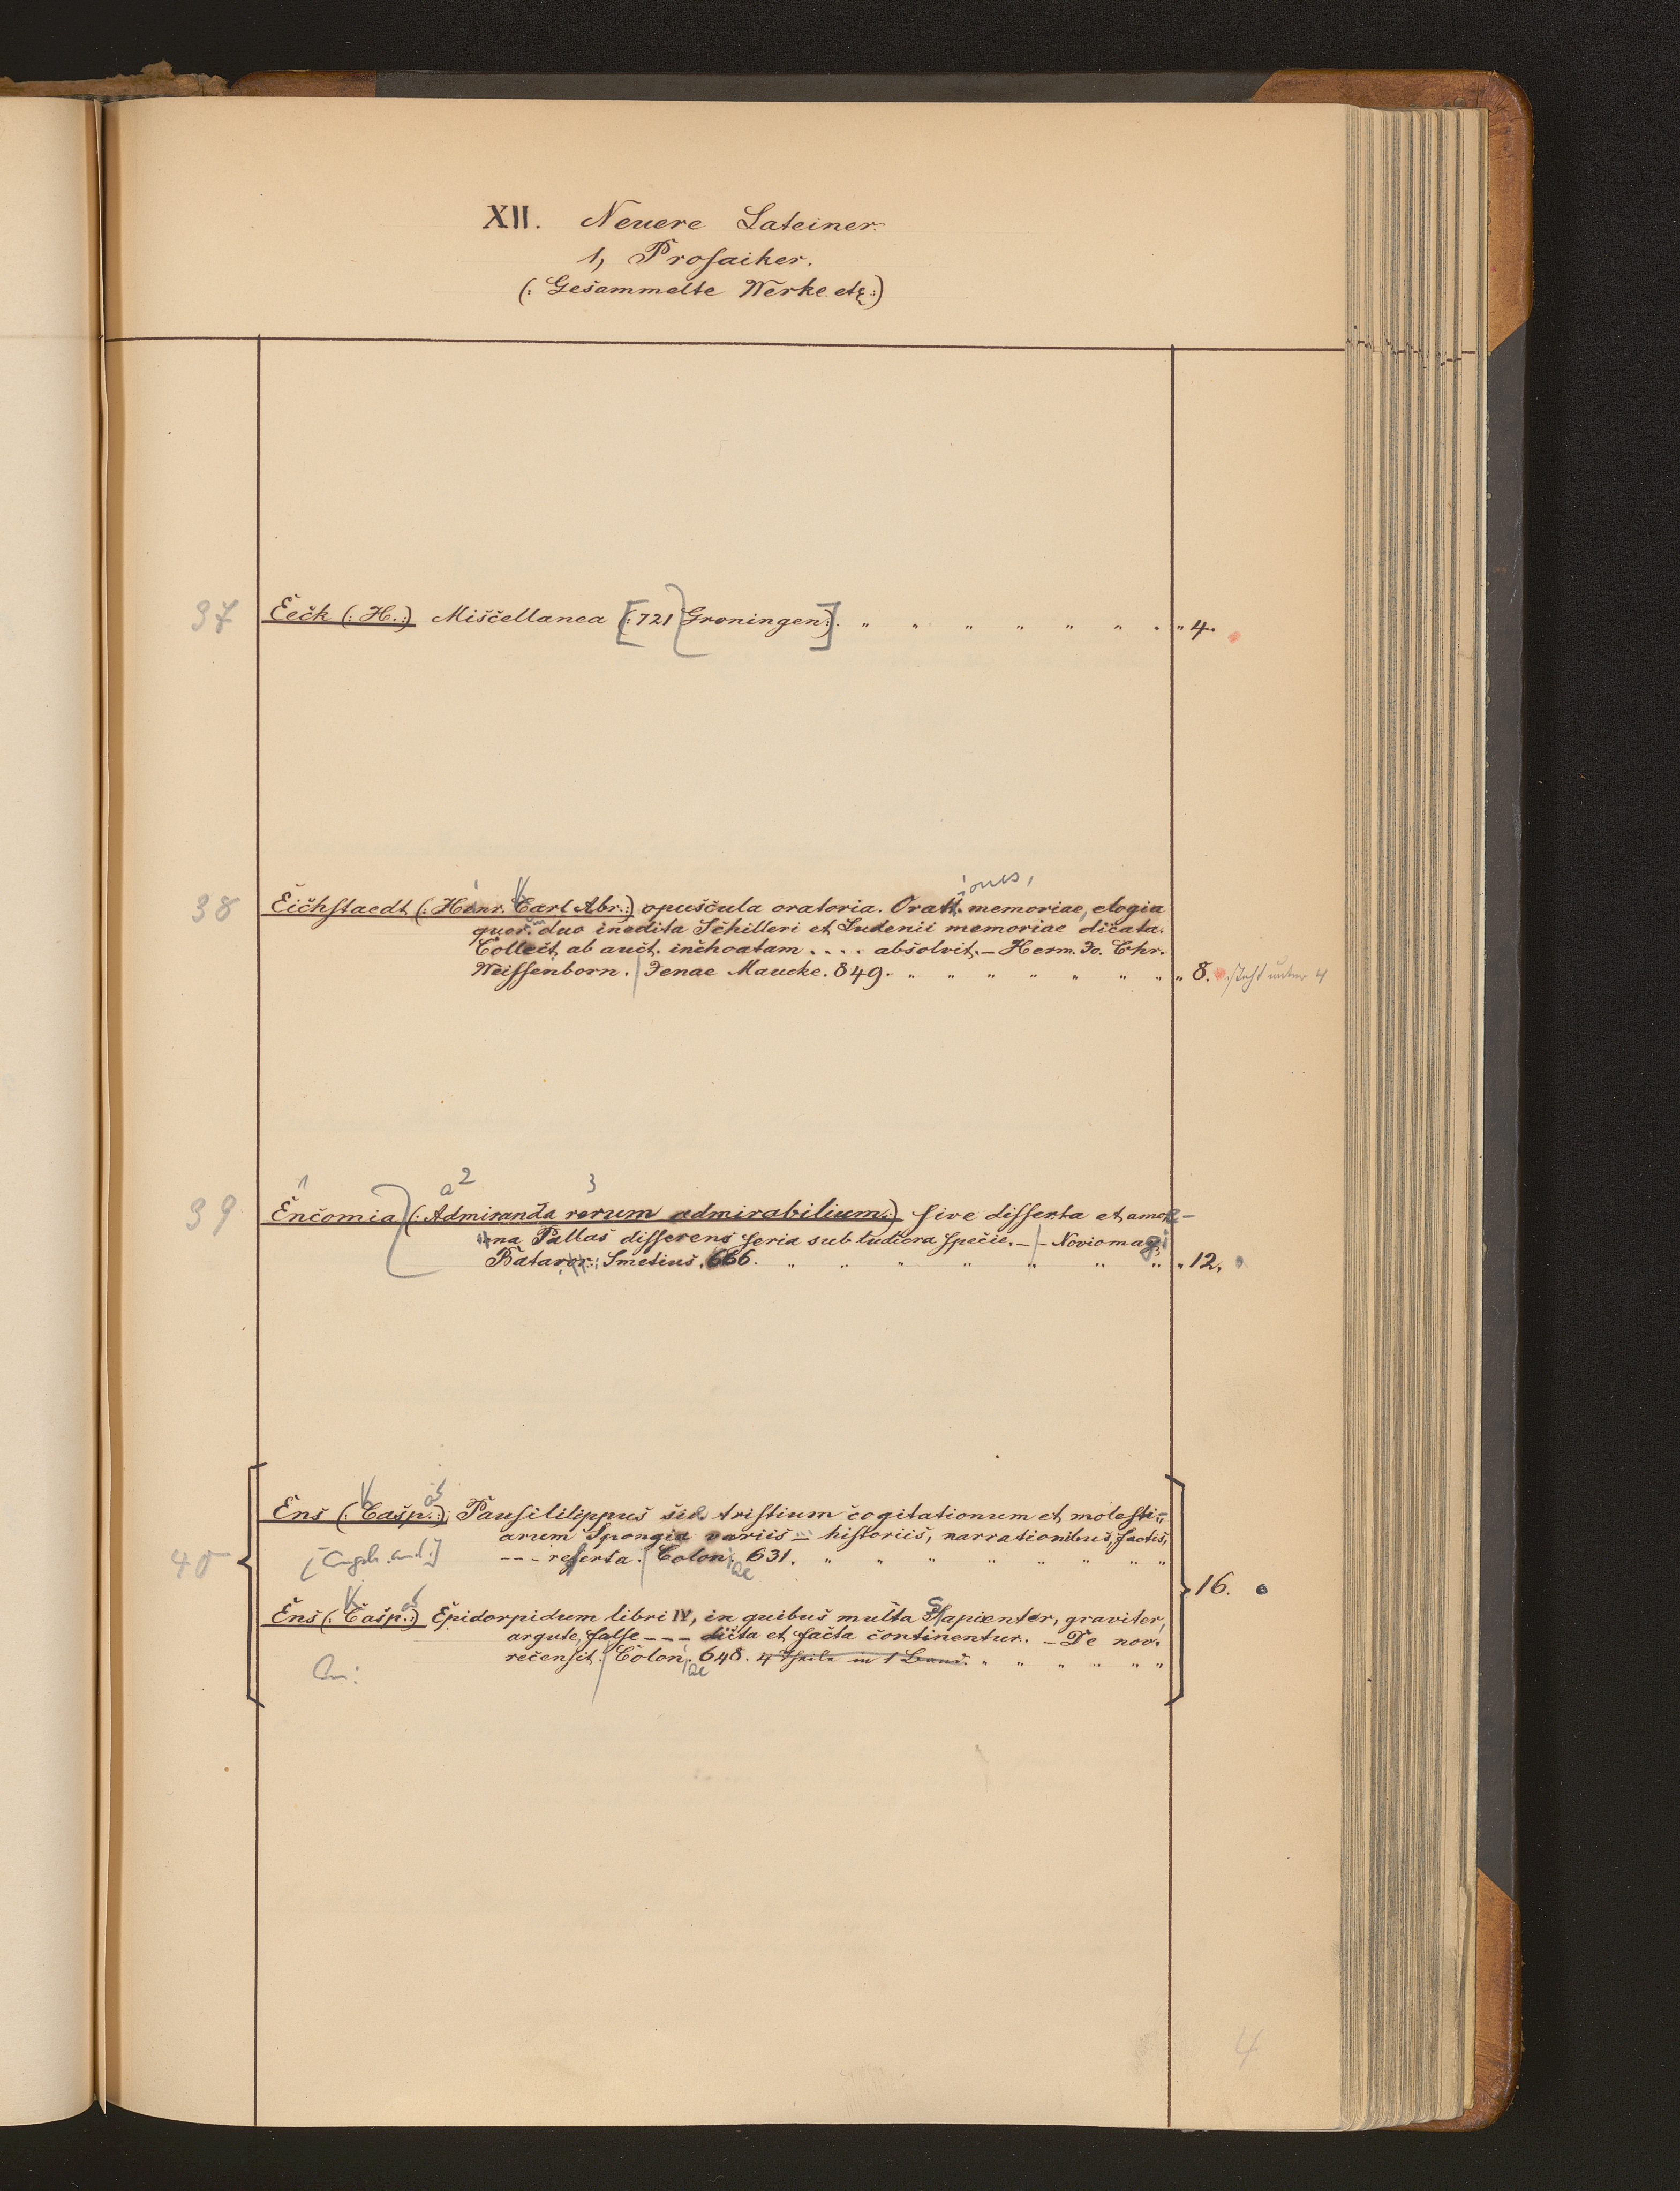 XII. Neuere Lateiner.
1, Prosaiker.
(: Gesammelte Werke etc :)
37 Eeck (: H. :) Miscellanea [(: 721 Groningen :)]. " " " " " " " " 4.
iones,
38 Eichstaedt (: Heinr. Carl Abr. :) opuscula oratoria. Oratt. memoriae, elogia
quor. duo inedita Schilleri et Ludenii memoriae dicata.
Collect. ab auct. inchoatam .... absolvit. – Herm. Jo. Chr.
Weissenborn. Jenae Maucke. 849. " " " " " " " " 8. steht unter 4
1 a 2 3
39 Encomia (: Admiranda rerum admirabilium :) sive disserta et amoe-
na Pallas disserens seria sub ludicra specie. – – Noviomagi
Batavor: Smetius. 666. " " " " " " " " 12.
K as
Ens (: Casp. :) Pausililippus sive tristium cogitationum et molesti-
arum Spongia variis – historiis, narrationibus, factis,
40 --- referta. Coloniae 631. " " " " " " " "
16.
K as
Ens (: Casp. :) Epidorpidum libri IV, in quibus multa Sapienter, graviter,
argute, salse --- dicta et facta continentur. – De nov.
recensit. Coloniae 648. 4 Theile in 1 Band. " " " " " "
4